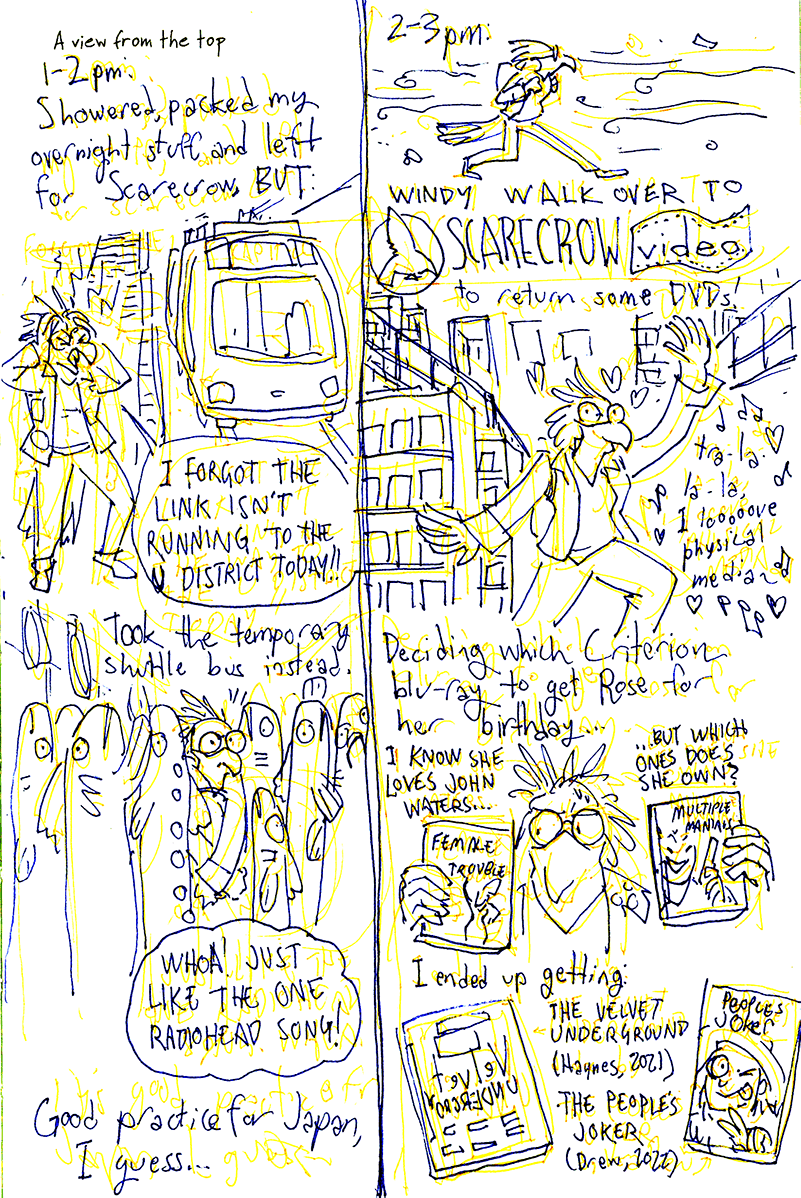 A view from the top
1-2pm:
Showered, packed my
overnight stuff, and left
for Scarecrow, BUT:
I FORGOT THE
LINK ISN'T
RUNNING TO THE
U DISTRICT TODAY!!
Took the temporary
shuttle bus instead.
WHOA! JUST
LIKE THE ONE
RADIOHEAD SONG!
Good practice for Japan,
I guess...
2-3pm:
WINDY WALK OVER TO
SCARECROW video
to return some DVDs!
da,
tra-la-
la-la,
I looooove
physical
media
Deciding which Criterion
blu-ray to get Rose for
her birthday...
I KNOW SHE
LOVES JOHN
WATERS...
...BUT WHICH
ONES DOES
SHE OWN?
FEMALE
TROUBLE
MULTIPLE
MANIACS
I ended up getting:
VELVET
UNDERGROUND
THE VELVET
UNDERGROUND
(Haynes, 2021)
THE PEOPLE'S
JOKER
(Drew, 2022)
PEOPLES
JOKER